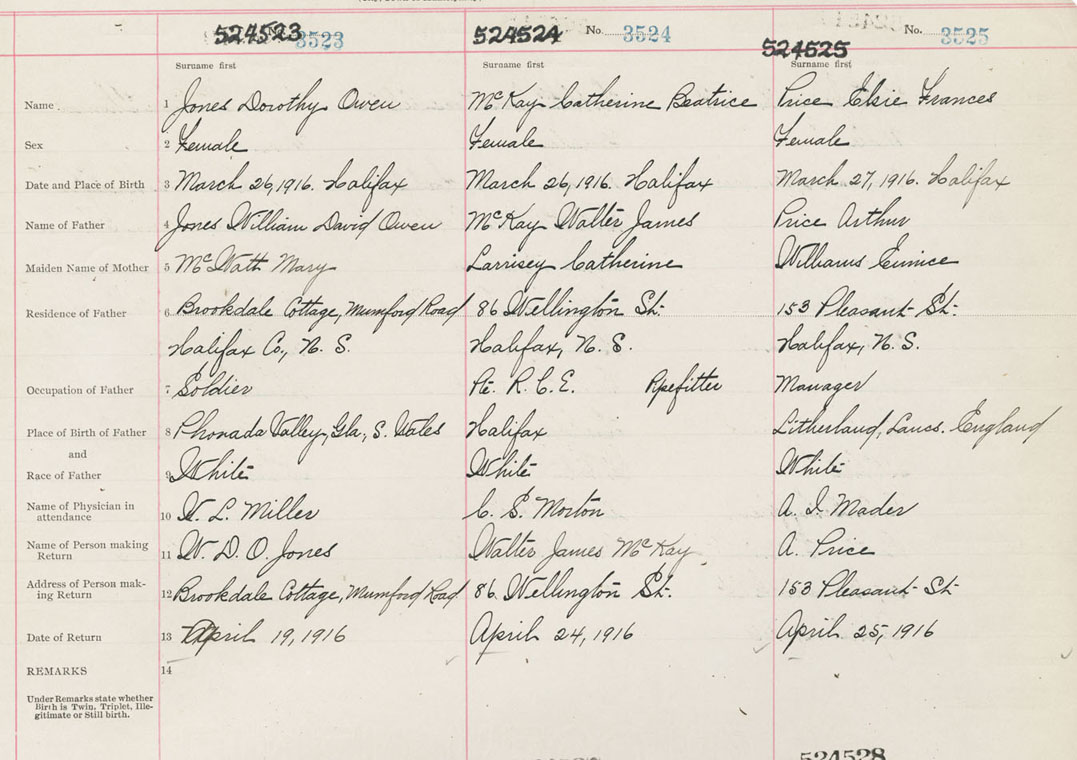 524523 3523 524524 No. 3524 524525 No. 3525
Surname first Surname first Surname first
Name 1 Jones Dorothy Owen McKay Catherine Beatrice Price Elsie Frances
Sex 2 Female Female Female
Date and Place of Birth 3 March 26, 1916. Halifax March 26, 1916. Halifax March 27, 1916. Halifax
Name of Father 4 Jones William David Owen McKay Walter James Price Arthur
Maiden Name of Mother 5 McWatt Mary Larrisey Catherine Williams Eunice
Residence of Father 6 Brookdale Cottage, Mumford Road 86 Wellington St. 153 Pleasant St.
Halifax Co., N. S. Halifax, N. S. Halifax, N. S.
Occupation of Father 7 Soldier Pte. R. C. E. Pipefitter Manager
Place of Birth of Father 8 Rhonada Valley, Gla, S. Wales Halifax Litherland, Lancs. England
and
Race of Father 9 White White White
Name of Physician in
attendance 10 W. L. Miller C. S. Morton A. I. Mader
Name of Person making
Return 11 W. D. O. Jones Walter James McKay A. Price
Address of Person mak-
ing Return 12 Brookdale Cottage, Mumford Road 86 Wellington St. 153 Pleasant St.
Date of Return 13 April 19, 1916 April 24, 1916 April 25, 1916
REMARKS 14
Under Remarks state whether
Birth is Twin, Triplet, Ille-
gitimate or Still birth.
524528